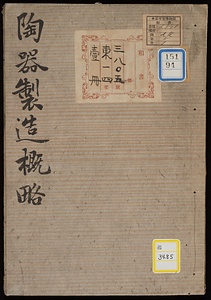 陶器製造概略
三八〇五
東一四
壹冊
151
91
3485